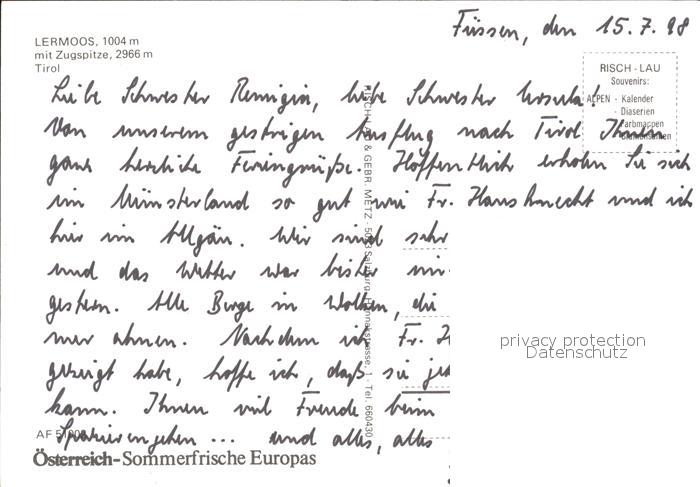 Füssen, den 15.7.98
LERMOOS, 1004 m
mit Zugspitze, 2966 m
Tirol
RISCH-LAU
Souvenirs:
ALPEN - Kalender
- Diaserien
Farbmappen
Liebe Schwester Remigia, liebe Schwester Ursula!
Von unserem gestrigen Ausflug nach Tirol Ihnen
ganz herzliche Feriengrüße. Hoffentlich erholen Sie sich
im Münsterland so gut wie Fr. Hausknecht und ich
hier im Allgäu. Wir sind sehr
und das Wetter war bisher
gestern. Alle Berge in Wolken, die
nur ahnen. Nachdem ich Fr. H
gezeigt habe, hoffe ich, daß sie
kann. Ihnen viel Freude beim
Spazierengehen ... und alles, alles
RISCH-LAU & GEBR. METZ · Salzburg, 1 · Tel. 660430
AF
Österreich-Sommerfrische Europas
privacy protection
Datenschutz